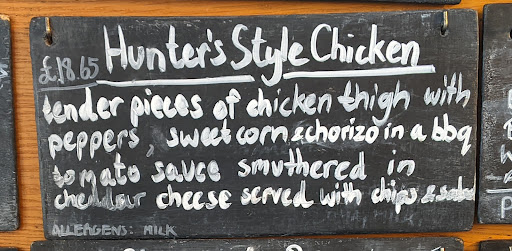 Hunter's Style Chicken
£18.65
tender pieces of chicken thigh with
peppers, sweetcorn & chorizo in a bbq
tomato sauce smuthered in
cheddar cheese served with chips & salad
ALLERGENS: MILK